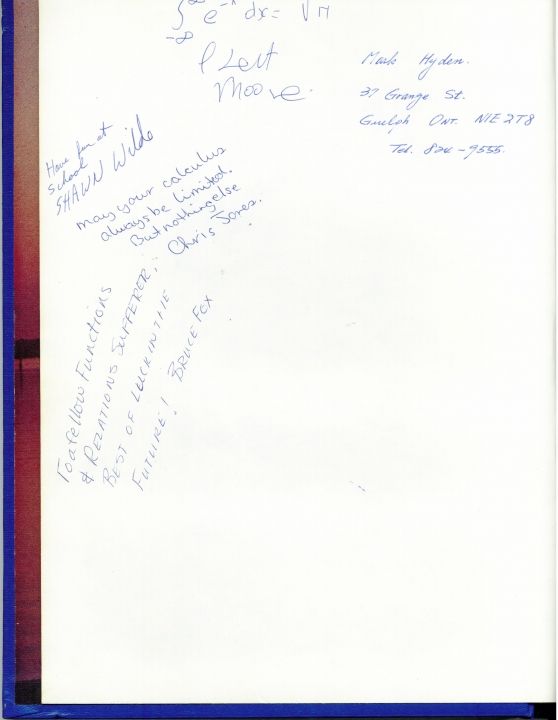 ∫ e dx = √π
-∞
Moore.
Mark Hyden.
37 Grange St.
Guelph Ont. N1E 2T8
Tel. 824-9555.
Have fun at
School
SHAWN Wilde
may your calculus
always be limited.
But nothing else
Chris Jones.
To a fellow Functions
& RELATIONS SUFFERER;
BEST OF LUCK IN THE
FUTURE! BRUCE FOX